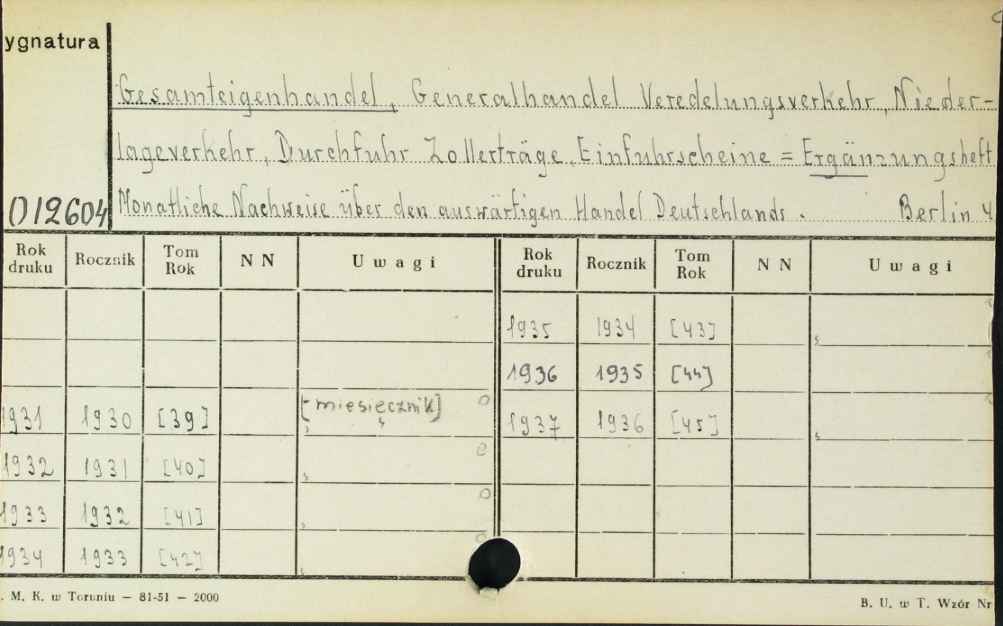 ygnatura
Gesamteigenhandel, Generalhandel Veredelungsverkehr, Nieder-
lageverkehr, Durchfuhr Zollerträge, Einfuhrscheine = Ergänzungsheft
012604 Monatliche Nachweise über den auswärtigen Handel Deutschlands. Berlin 4
Rok druku Rocznik Tom Rok N N Uwagi Rok druku Rocznik Tom Rok N N Uwagi
1935 1934 [43]
1936 1935 [44]
1931 1930 [39] [miesięcznik] 1937 1936 [45]
1932 1931 [40]
1933 1932 [41]
1934 1933 [42]
. M. K. w Toruniu — 81-51 — 2000 B. U. w T. Wzór Nr